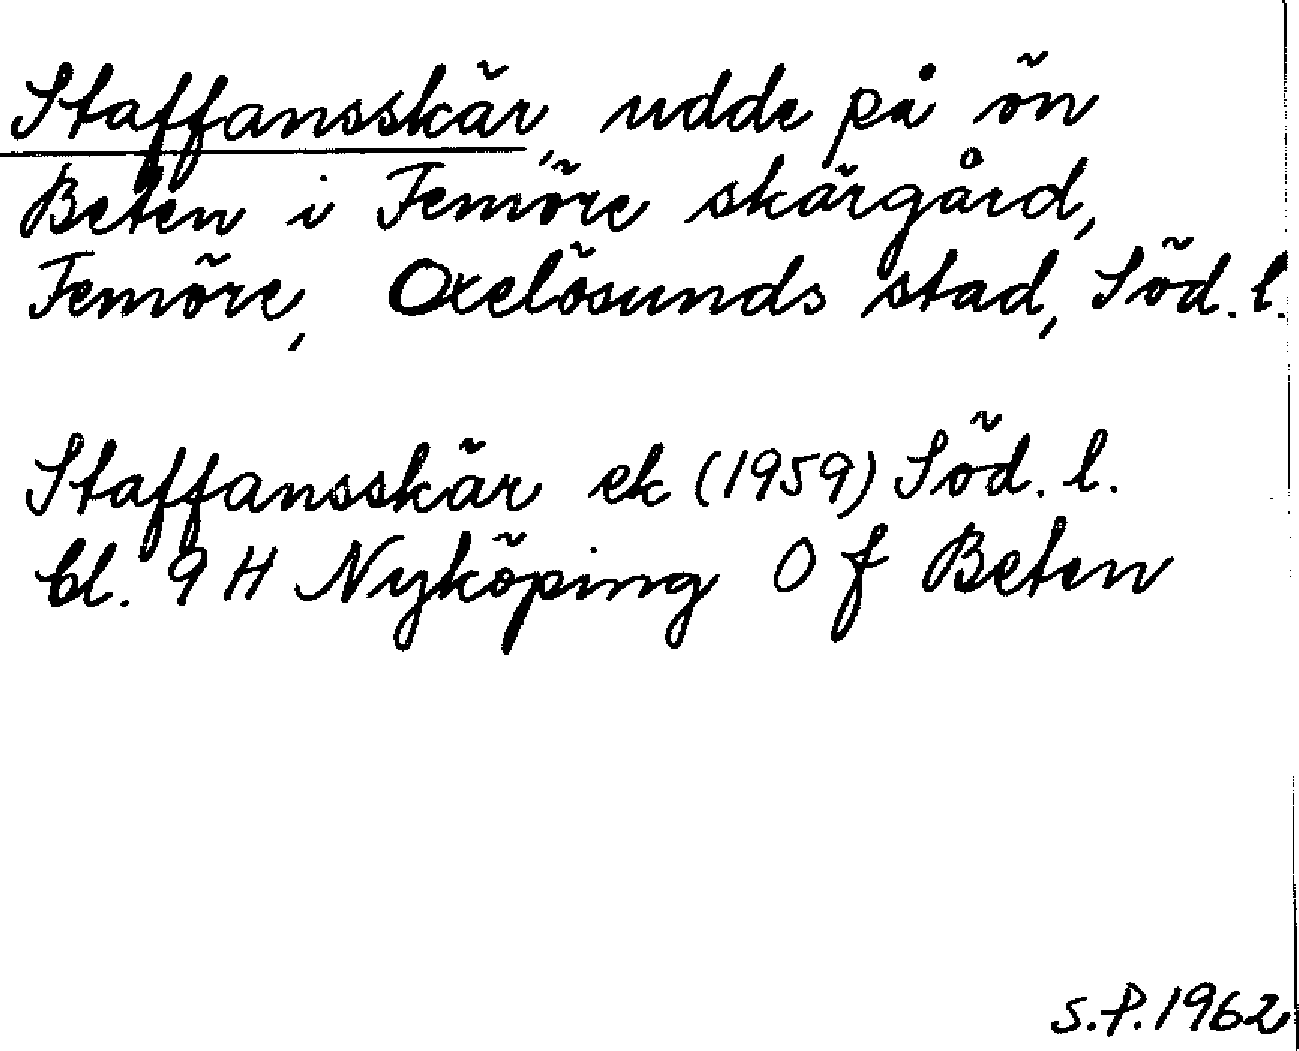 Staffansskär, udde på ön
Beten i Femöre skärgård,
Femöre, Oxelösunds stad, Söd. l.
Staffansskär ek (1959) Söd. l.
bl. 9 H Nyköping 0 f Beten
S.P. 1962